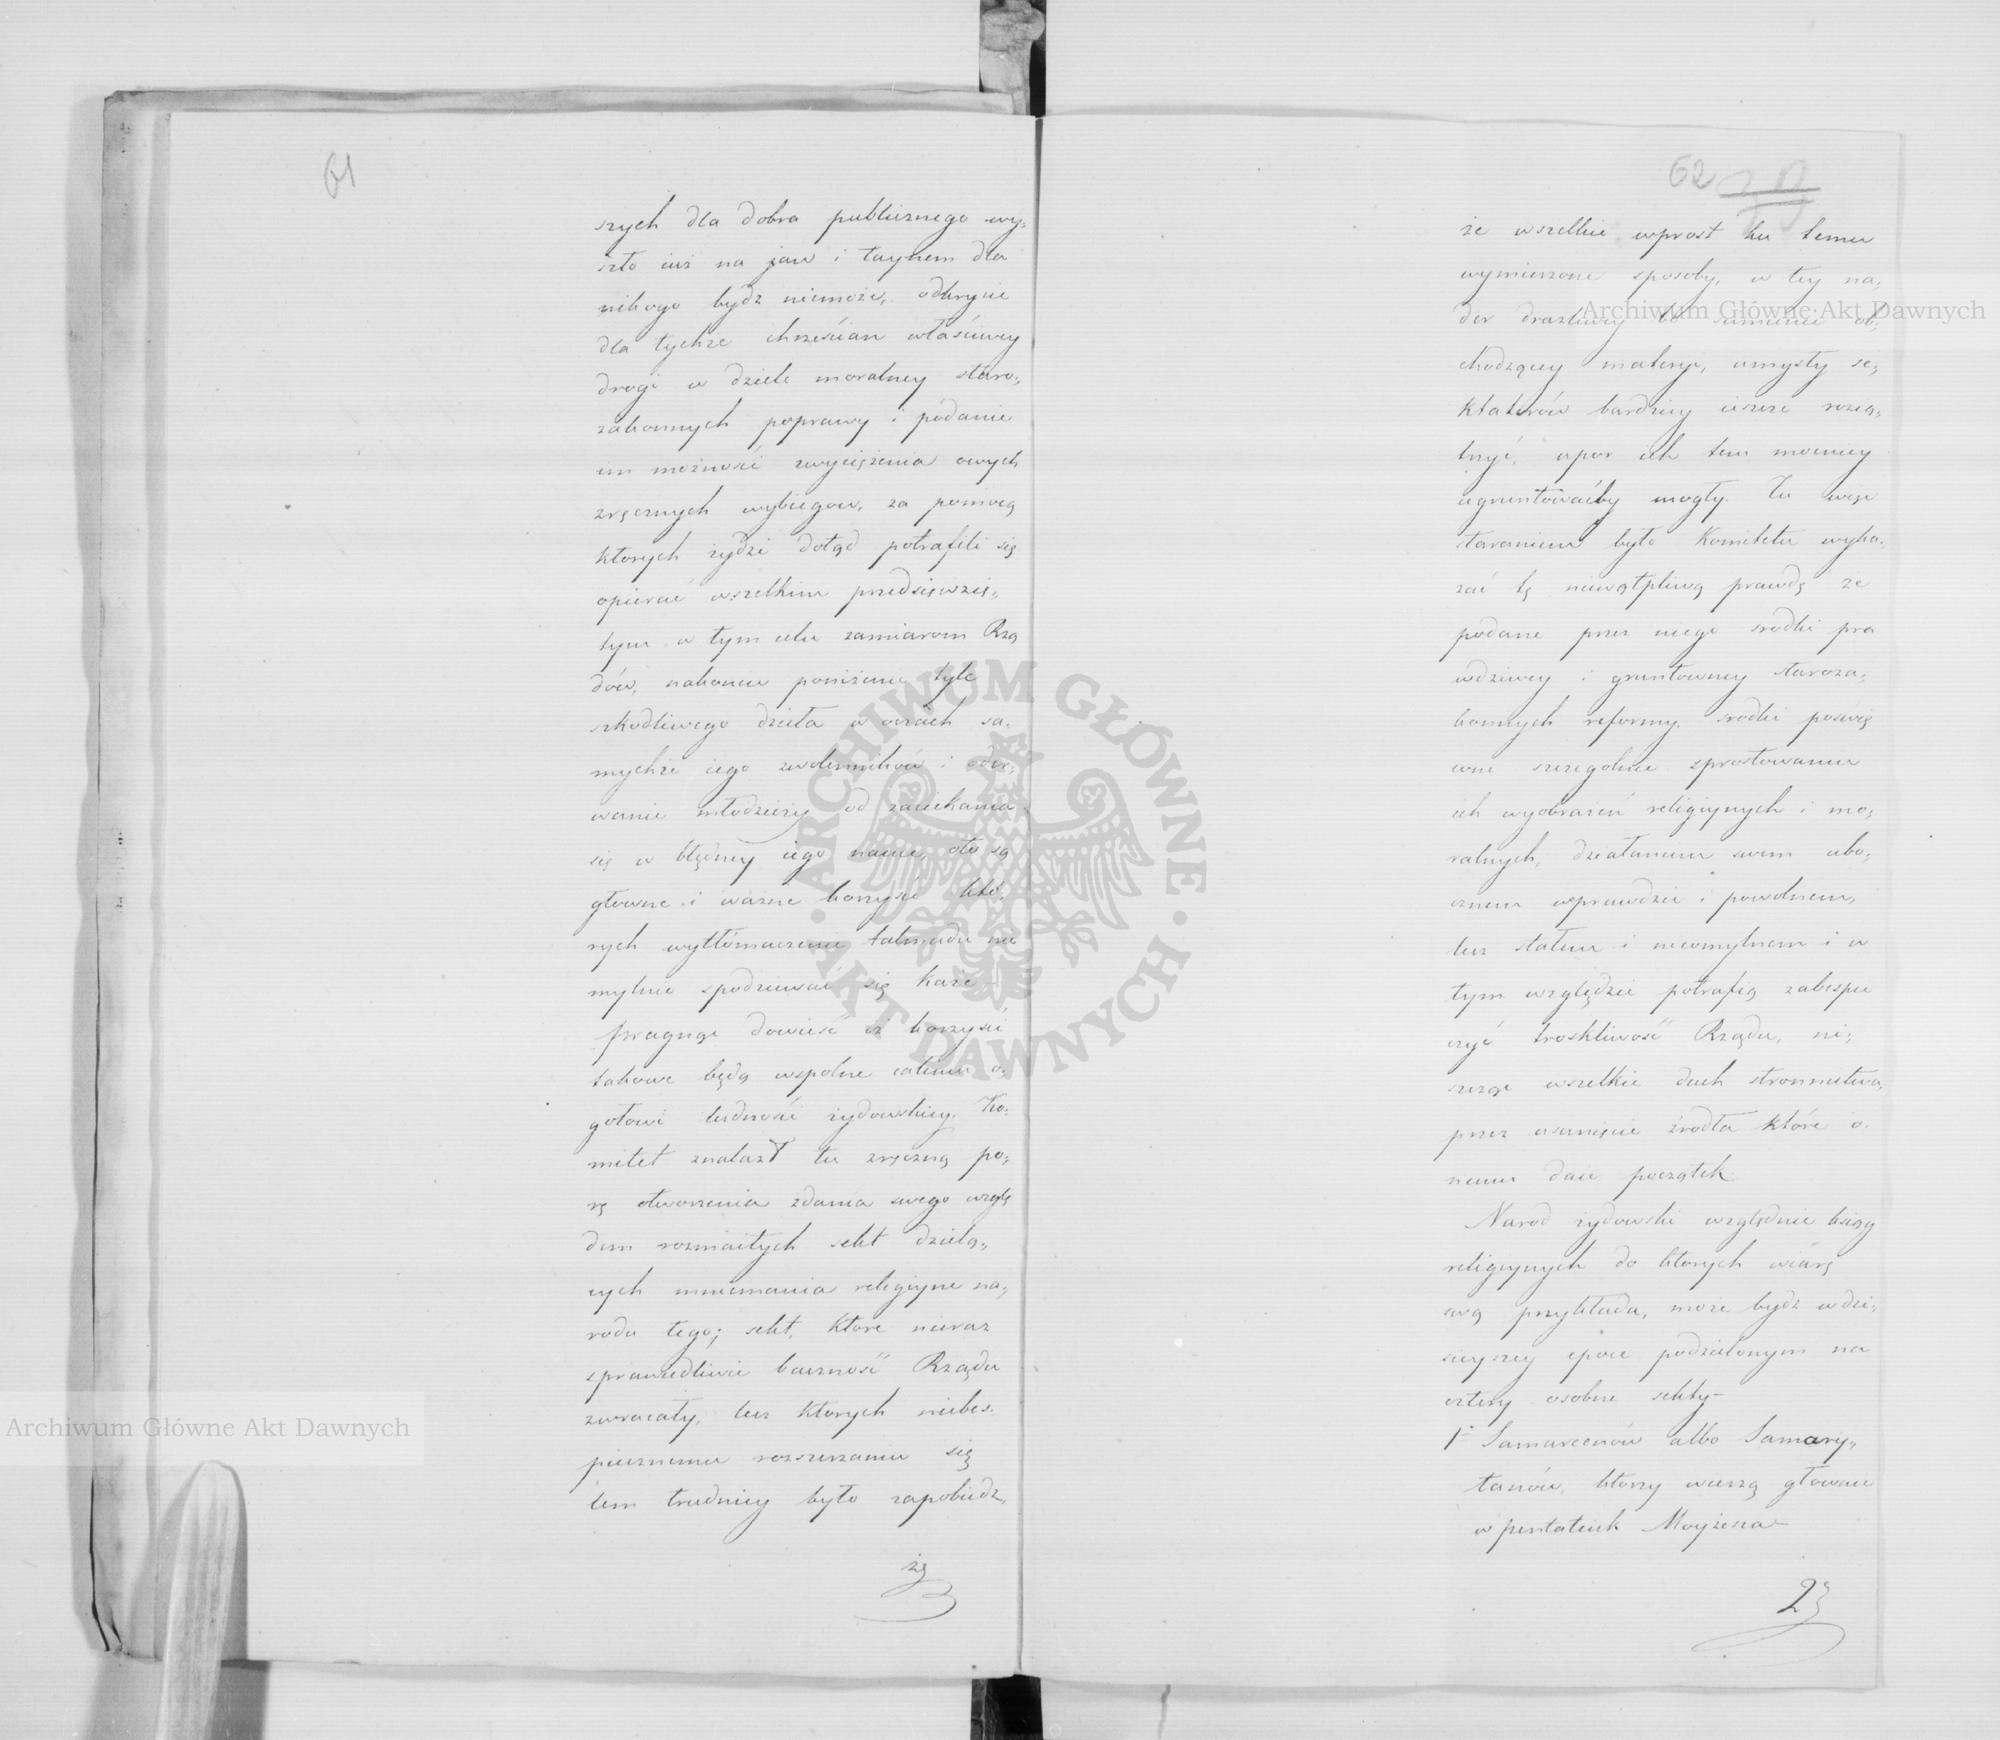 61
szych dla dobra publicznego wy„
szło iuż na jaw i taynem dla
nikogo bydz niemoże, odkrycie
dla tychże chrześcian właściwey
drogi w dziele moralney staro„
zakonnych poprawy i podanie
im możność zwyciężenia owych
zręcznych wybiegow, za pomocą
ktorych żydzi dotąd potrafili się
opierać wszelkim przedsięwzię„
tym w tym celu zamiarom Rzą
dów, nakoniec poniżenie tyle
szkodliwego dzieła w oczach sa„
mychże iego zwolenników i oder„
wanie młodzieży od zaciekania
się w błędney iego nauce, oto są
głowne i ważne korzyści któ„
rych wytłómaczenie talmudu nie
mylnie spodziewać się każe –
Pragnąc dowieść iż korzyści
takowe będą wspolne całemu o„
gołowi ludności żydowskiey. Ko„
mitet znalazł tu zręczną po„
rę otworzenia zdania swego wzglę
dem rozmaitych sekt dzielą„
cych mniemania religiyne na„
rodu tego; sekt, ktore nieraz
sprawiedliwie baczność Rządu
zwracały, lecz ktorych niebes„
piecznemu rozszerzaniu się
tem trudniey było zapobiedz,
że
62
że wszelkie wprost ku temu
wymierzone sposoby, w tey na„
der drazliwey bo sumienie ob„
chodzącey materyi, umysły se„
ktatorów bardziey ieszcze rozią„
trzyć, upor ich tem mocniey
ugruntowaćby mogły. Tu więc
staraniem było Komitetu wyka„
zać tę niewątpliwą prawdę że
podane przez niego srodki pra
wdziwey i gruntowney staroza„
konnych reformy, srodki poświę
cone szczegolnie sprostowaniu
ich wyobrażeń religiynych i mo„
ralnych, działaniem swem ubo„
cznem wprawdzie i powolnem,
lecz stałem i nieomylnem i w
tym względzie potrafią zabespie
czyć troskliwość Rządu, ni„
szcząc wszelki duch stronnictwa,
przez usunięcie źrodła które o„
nemu daie początek
Narod żydowski względnie ksiąg
religiynych do ktorych wiarę
swą przykłada, może bydz w dzi„
sieyszey epoce podzielonym na
cztery osobne sekty –
1° Samarcenów albo Samary„
tanów, ktorzy wierzą głownie
w pentateuk Moyżesza –
2°
Archiwum Główne Akt Dawnych
Archiwum Główne Akt Dawnych
ARCHIWUM GŁÓWNE · AKT DAWNYCH ·